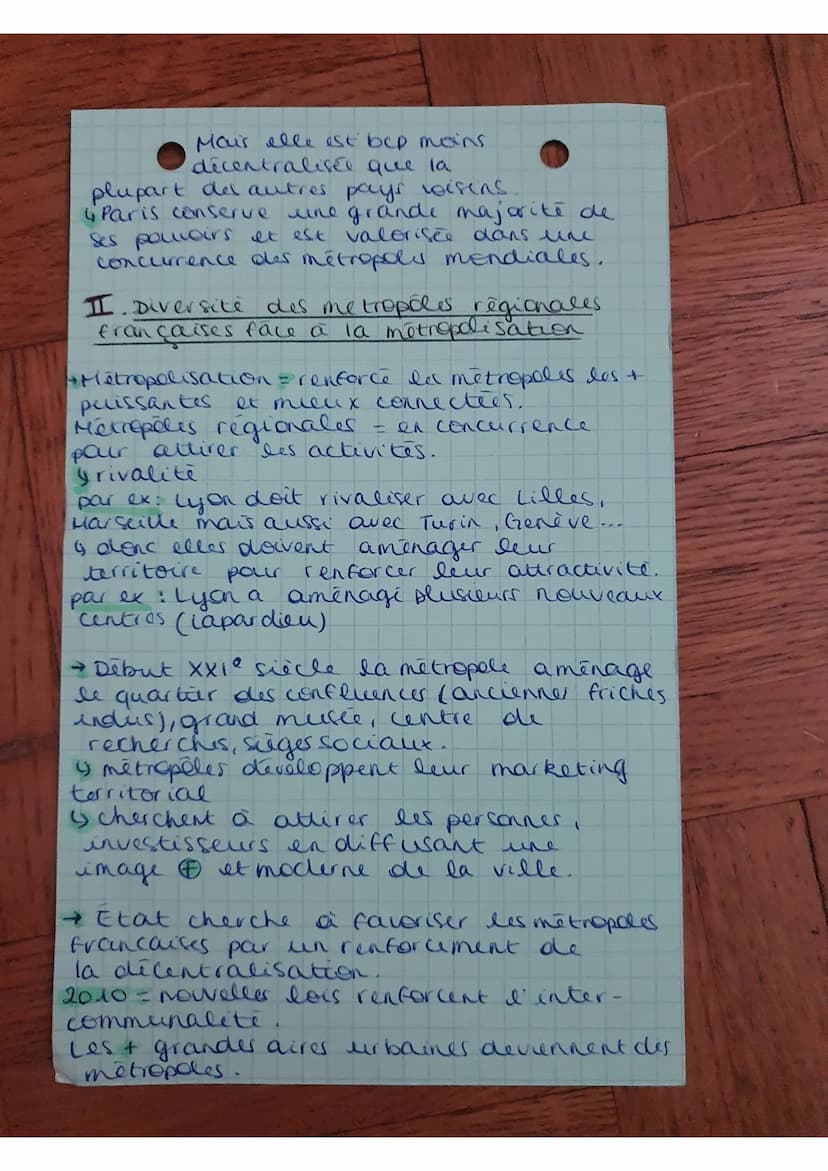 Mais elle est bcp moins
décentralisée que la
plupart des autres pays voisens.
↳ Paris conserve une grande majorité de
ses pouvoirs et est valorisée dans une
concurrence des métropoles mondiales.
II. Diversité des metropôles régionales
françaises face à la métropolisation
→ Métropolisation = renforcé les métropoles les +
puissantes et mieux connectées.
Métropôles régionales = en concurrence
pour attirer les activités.
↳ rivalité
par ex: Lyon doit rivaliser avec Lilles,
Marseille mais aussi avec Turin, Genève...
↳ donc elles doivent aménager leur
territoire pour renforcer leur attractivité.
par ex : Lyon a aménagé plusieurs nouveaux
centres (lapardieu)
→ Début XXIe siècle la métropole aménage
le quartier des confluences (anciennes friches
indus), grand musée, centre de
recherches, sièges sociaux.
↳ métropôles développent leur marketing
territorial
↳ cherchent à attirer les personnes,
investisseurs en diffusant une
image ⊕ et moderne de la ville.
→ État cherche à favoriser les métropoles
françaises par un renforcement de
la décentralisation.
2010 = nouvelles lois renforcent l'inter-
communalité.
Les + grandes aires urbaines deviennent des
métropoles.